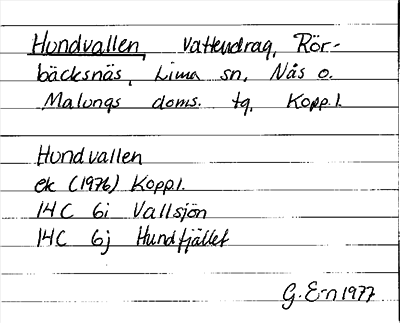 Hundvallen, vattendrag, Rör-
bäcksnäs, Lima sn, Nås o.
Malungs doms. tg, Kopp.l.
Hundvallen
ek (1976) Kopp.l.
14C 6i Vallsjön
14C 6j Hundfjället
G. E-n 1977